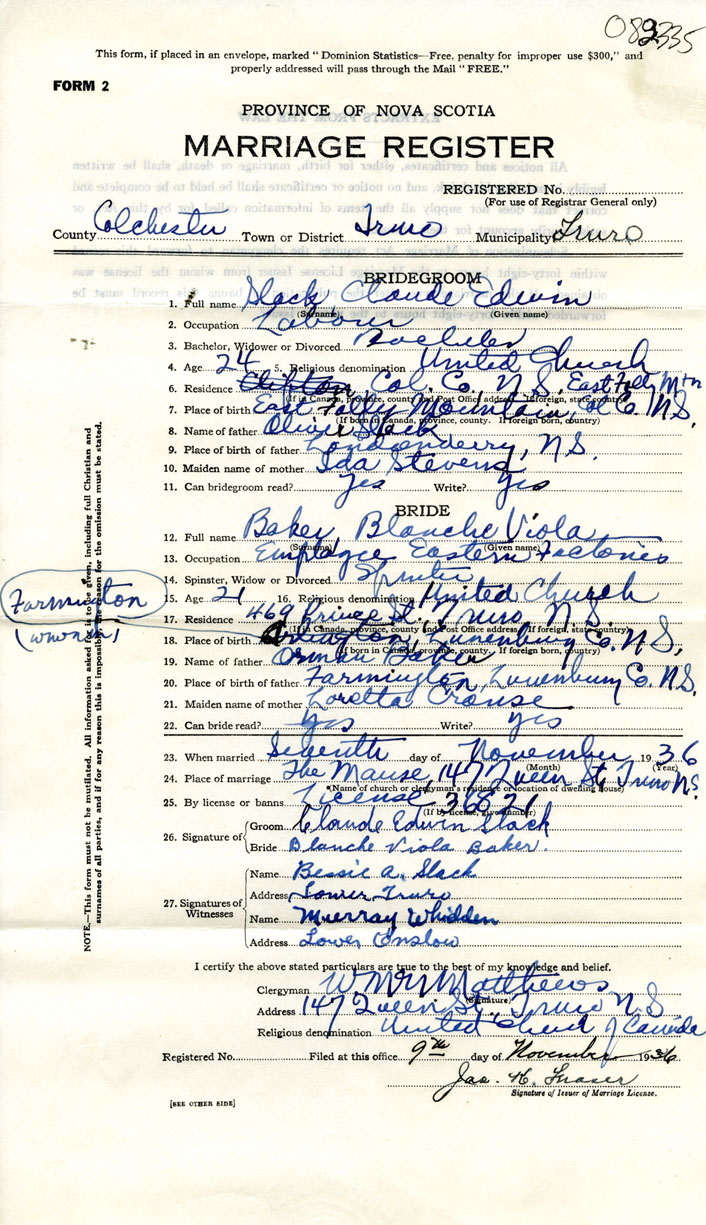 082335
This form, if placed in an envelope, marked "Dominion Statistics—Free, penalty for improper use $300," and
properly addressed will pass through the Mail "FREE."
FORM 2
PROVINCE OF NOVA SCOTIA
MARRIAGE REGISTER
REGISTERED No.
(For use of Registrar General only)
County Colchester Town or District Truro Municipality Truro
BRIDEGROOM
1. Full name Slack, Claude Edwin
(Surname) (Given name)
2. Occupation Labour
3. Bachelor, Widower or Divorced Bachelor
4. Age 24 5. Religious denomination United Church
6. Residence Clifton, Col. Co., N.S. East Folly Mtn
(If in Canada, province, county and Post Office address. If foreign, state country)
7. Place of birth East Folly Mountain, Col Co. N.S.
(If born in Canada, province, county. If foreign born, country)
8. Name of father Oliver Slack
9. Place of birth of father Londonderry, N.S.
10. Maiden name of mother Ida Stevens
11. Can bridegroom read? Yes Write? Yes
BRIDE
12. Full name Baker Blanche Viola
(Surname) (Given name)
13. Occupation Employee Eastern Factories
14. Spinster, Widow or Divorced Spinster
15. Age 21 16. Religious denomination United Church
17. Residence 469 Prince St. Truro N.S.
(If in Canada, province, county and Post Office address. If foreign, state country)
18. Place of birth Lunenburg Co. N.S.
(If born in Canada, province, county. If foreign born, country)
19. Name of father Orman Baker
20. Place of birth of father Farmington, Lunenburg Co. N.S.
21. Maiden name of mother Loretta Crouse
22. Can bride read? Yes Write? Yes
23. When married Seventh day of November 1936
(Month) (Year)
24. Place of marriage The Manse, 147 Queen St. Truro N.S.
(Name of church or clergyman's residence or location of dwelling house)
25. By license or banns License 36826
(If by license, give number)
26. Signature of
Groom Claude Edwin Slack
Bride Blanche Viola Baker.
27. Signatures of Witnesses
Name Bessie A. Slack
Address Lower Truro
Name Murray Whidden
Address Lower Onslow
I certify the above stated particulars are true to the best of my knowledge and belief.
Clergyman Matthews
(Signature)
Address 147 Queen St., Truro N.S.
Religious denomination United Church of Canada
Registered No. Filed at this office 9th day of November 1936
Jas. K. Fraser
Signature of Issuer of Marriage License.
[SEE OTHER SIDE]
NOTE.—This form must not be mutilated. All information asked for is to be given, including full Christian and
surnames of all parties, and if for any reason this is impossible, the reason for the omission must be stated.
Farmington